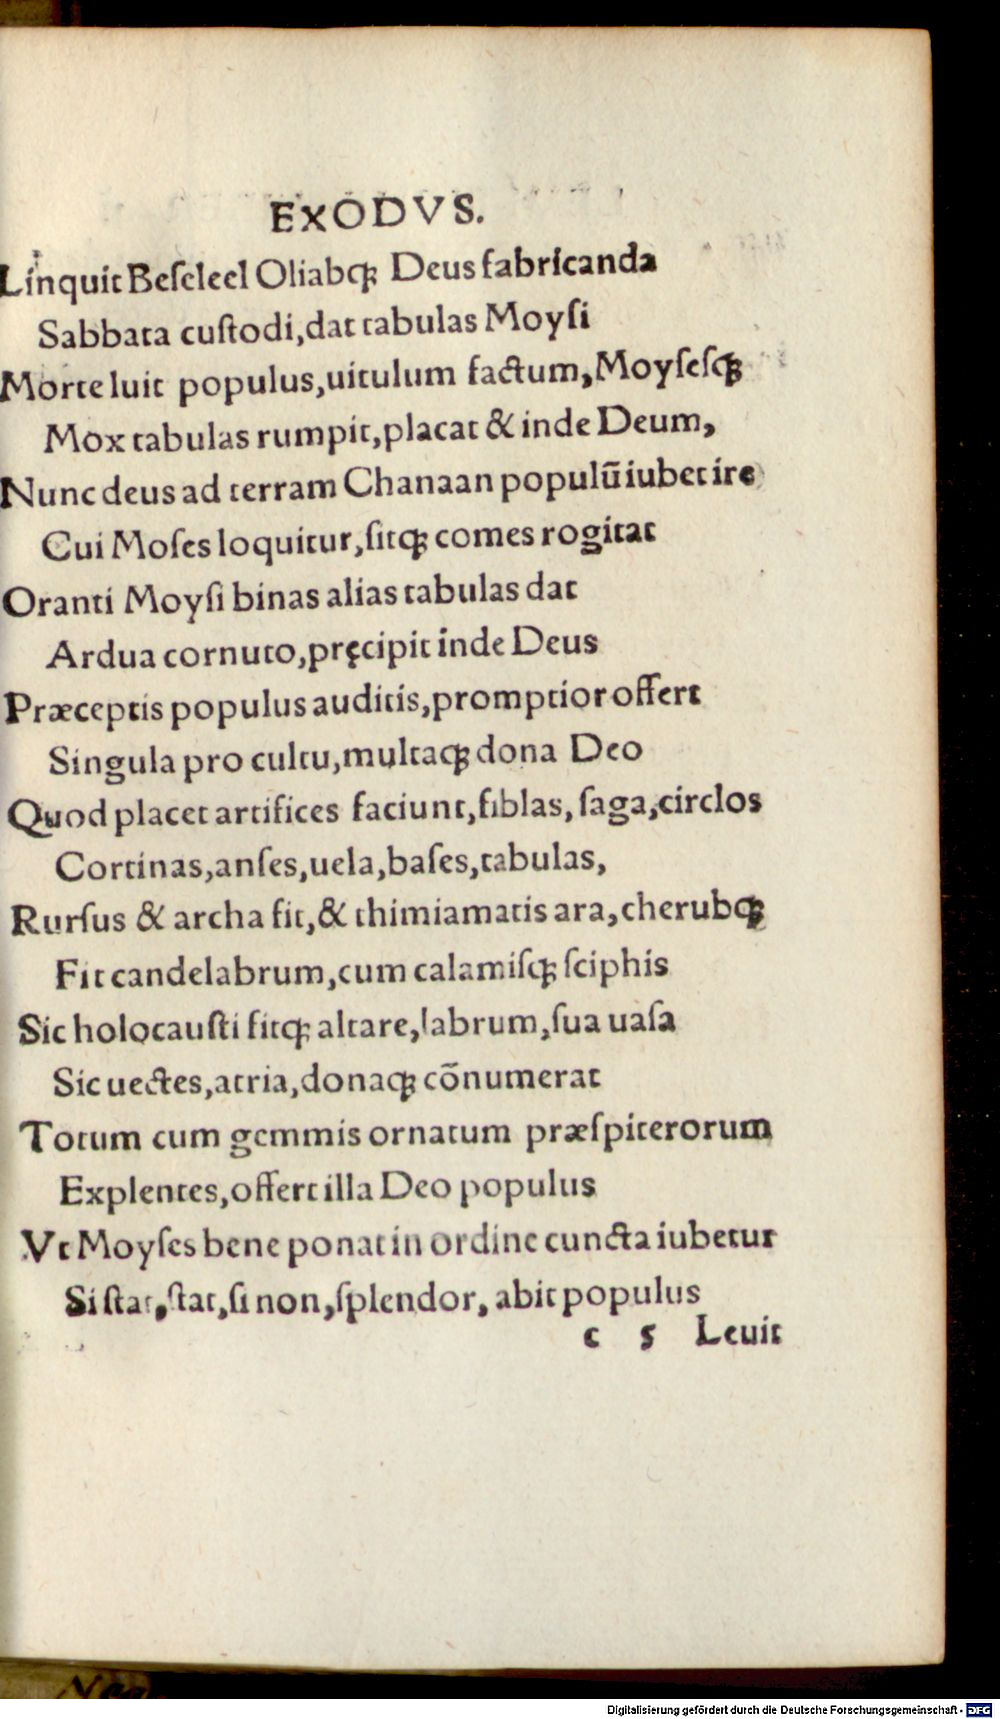 EXODVS.
Linquit Beſeleel Oliabqꝫ Deus fabricanda
Sabbata cuſtodi,dat tabulas Moyſi
Morte luit populus,uitulum factum,Moyſeſqꝫ
Mox tabulas rumpit,placat & inde Deum,
Nunc deus ad terram Chanaan populũ iubet ire
Cui Moſes loquitur,ſitqꝫ comes rogitat
Oranti Moyſi binas alias tabulas dat
Ardua cornuto,pręcipit inde Deus
Præceptis populus auditis,promptior offert
Singula pro cultu,multaqꝫ dona Deo
Quod placet artifices faciunt,fiblas, ſaga,circlos
Cortinas,anſes,uela,baſes,tabulas,
Rurſus & archa fit,& thimiamatis ara,cherubqꝫ
Fit candelabrum,cum calamiſqꝫ ſciphis
Sic holocauſti fitqꝫ altare,labrum,ſua uaſa
Sic uectes,atria,donaqꝫ cõnumerat
Totum cum gemmis ornatum præſpiterorum
Explentes,offert illa Deo populus
Vt Moyſes bene ponat in ordine cuncta iubetur
Si ſtat,ſtat,ſi non,ſplendor, abit populus
c 5 Leuit
Digitalisierung gefördert durch die Deutsche Forschungsgemeinschaft - DFG